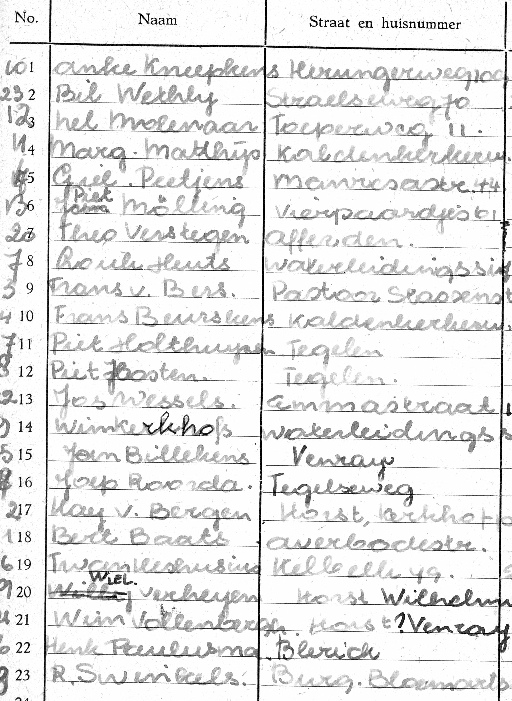 No. Naam Straat en huisnummer
1 Anke Kneepkens Herungerweg
2 Bil Straelseweg 70
3 Nel Molenaar Toeperweg 11.
4 Marg. Matthijs Kaldenkerkerw.
5 Guil. Peetjens
6 Piet Mölling Vierpaardjes 61
7 Theo Verstegen Afferden.
8 Waterleidingss
9 Frans v. Bess. Pastoor
10 Frans Beurskens Kaldenkerkerw.
11 Piet Holthuysen Tegelen
12 Piet Joosten. Tegelen.
13 Jos Wessels. Emmastraat
14 Wim Kerkhofs Waterleidings
15 Jan Billekens Venray
16 Joep Roorda. Tegelseweg
17 Kay v. Bergen Horst, Kerkhop
18 Bert Baats Averbodestr.
19
20 Wiel. Verheyen Horst Wilhelm
21 Wim Vollenbergh. Horst ? Venray
22 Henk Paulusma. Blerick
23 R. Swinkels. Burg. Bloemarts